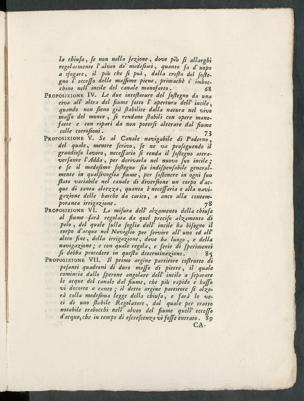 la chiusa, se non nella sezione, dove più si allarghi
regolarmente l'alveo de' medesimi, quanto fa d'uopo
a sfogare, il più che si può, dalla cresta del soste-
gno l'eccesso delle massime piene, primacchè imboc-
chino nell'incile del canale manofatto. 68
PROPOSIZIONE IV. Le due intestature del sostegno da una
riva all'altra del fiume sotto l'apertura dell'incile,
quando non sieno già stabilite dalla natura nel vivo
masso del monte, si rendano stabili con opere mano-
fatte e con ripari da non potersi alterare dal fiume
colle corrosioni. 73
PROPOSIZIONE V. Se al Canale navigabile di Paderno,
del quale, mentre scrivo, se ne va proseguendo il
grandioso lavoro, necessario si renda il sostegno attra-
versante l'Adda, per derivarla nel nuovo suo incile;
e se il medesimo sostegno sia indispensabile general-
mente in qualsivoglia fiume, per sostenere in ogni suo
stato variabile nel canale di diversione un corpo d'ac-
que di tanta altezza, quanta è necessaria e alla navi-
gazione delle barche da carico, o anco alla contem-
poranea irrigazione. 78
PROPOSIZIONE VI. La misura dell'alzamento della chiusa
al fiume sarà regolata da quel preciso alzamento di
pelo, del quale sulla soglia dell'incile ha bisogno il
corpo d'acque nel Naviglio per servire all'uno ed all'
altro fine, della irrigazione, dove ha luogo, e della
navigazione; e con quale regola, e serie di sperimenti
si debba procedere in questa determinazione. 85
PROPOSIZIONE VII. Il primo argine partitore costrutto di
pesanti quadroni di duro masso di pietre, il quale
comincia dallo sperone angolare dell'incile a separare
le acque del canale dal fiume, che più rapido e basso
vi decorre a canto; il detto argine partitore si alze-
rà colla medesima legge della chiusa, e farà le ve-
ci di uno stabile Regolatore, dal quale per tratto
notabile trabocchi nell'alveo del fiume quell'eccesso
d'acque, che in tempo di escrescenza vi fosse entrato. 89
CA-